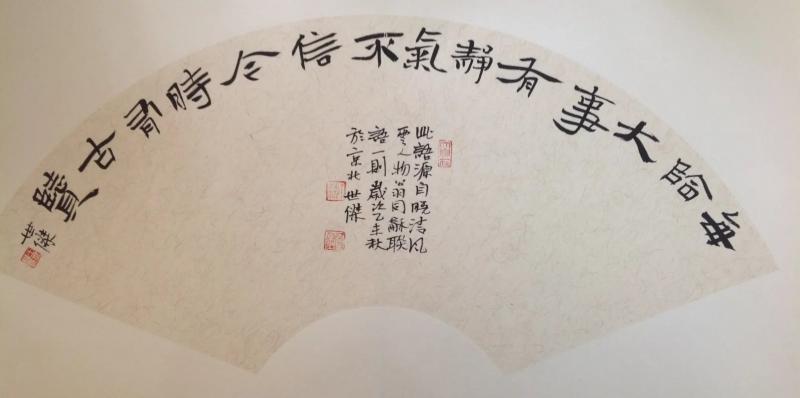 每臨大事有靜氣不信今時古賢
世傑
此語源自晚清風
雲人物翁同龢聯
語一則歲次乙未秋
於京北世傑